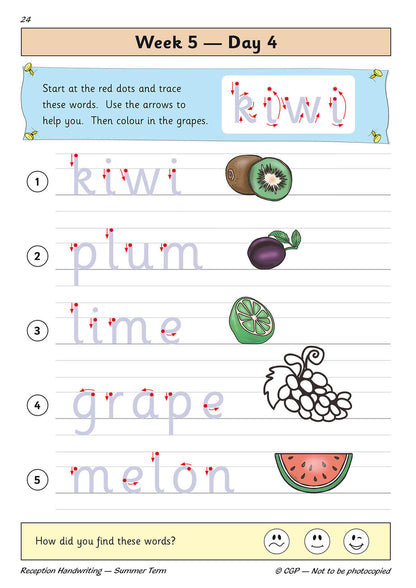 24
Week 5 — Day 4
Start at the red dots and trace
these words. Use the arrows to
help you. Then colour in the grapes.
kiwi
1 kiwi
2 plum
3 lime
4 grape
5 melon
How did you find these words?
Reception Handwriting — Summer Term
© CGP — Not to be photocopied